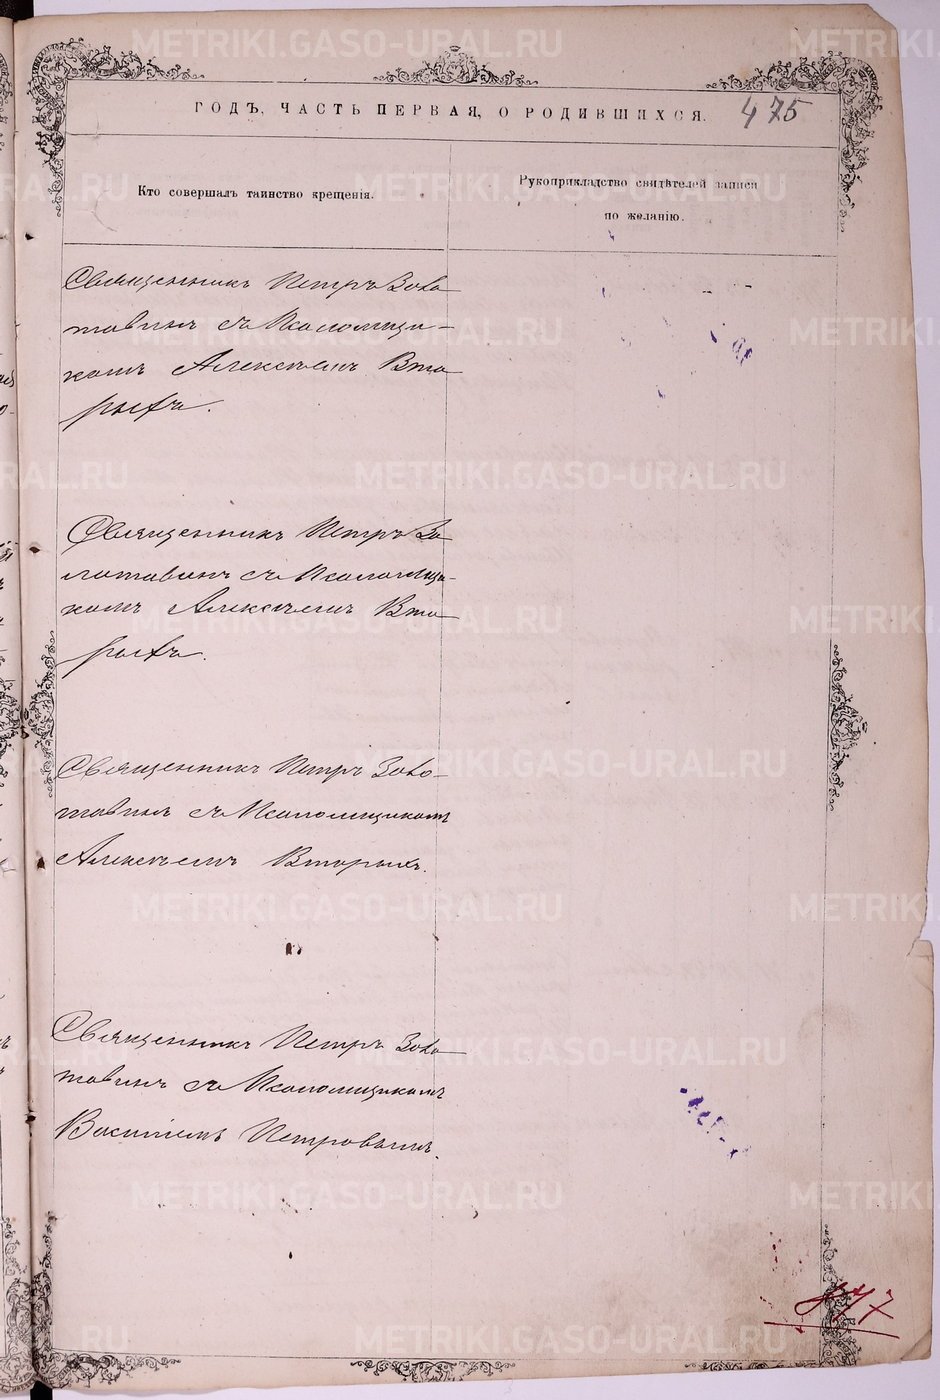 ГОДЪ, ЧАСТЬ ПЕРВАЯ, О РОДИВШИХСЯ.
475
Кто совершалъ таинство крещенія.
Рукоприкладство свидѣтелей записи
по желанію.
Священникъ Петръ Золо
тавинъ съ Псаломщи-
комъ Алексѣемъ Вто
рыхъ.
Священникъ Петръ Зо
лотавинъ съ Псаломщи-
комъ Алексѣемъ Вто
рыхъ.
Священникъ Петръ Золо-
тавинъ съ Псаломщикомъ
Алексѣемъ Вторыхъ.
Священникъ Петръ Золо
тавинъ съ Псаломщикомъ
Василіемъ Петровымъ.
METRIKI.GASO-URAL.RU